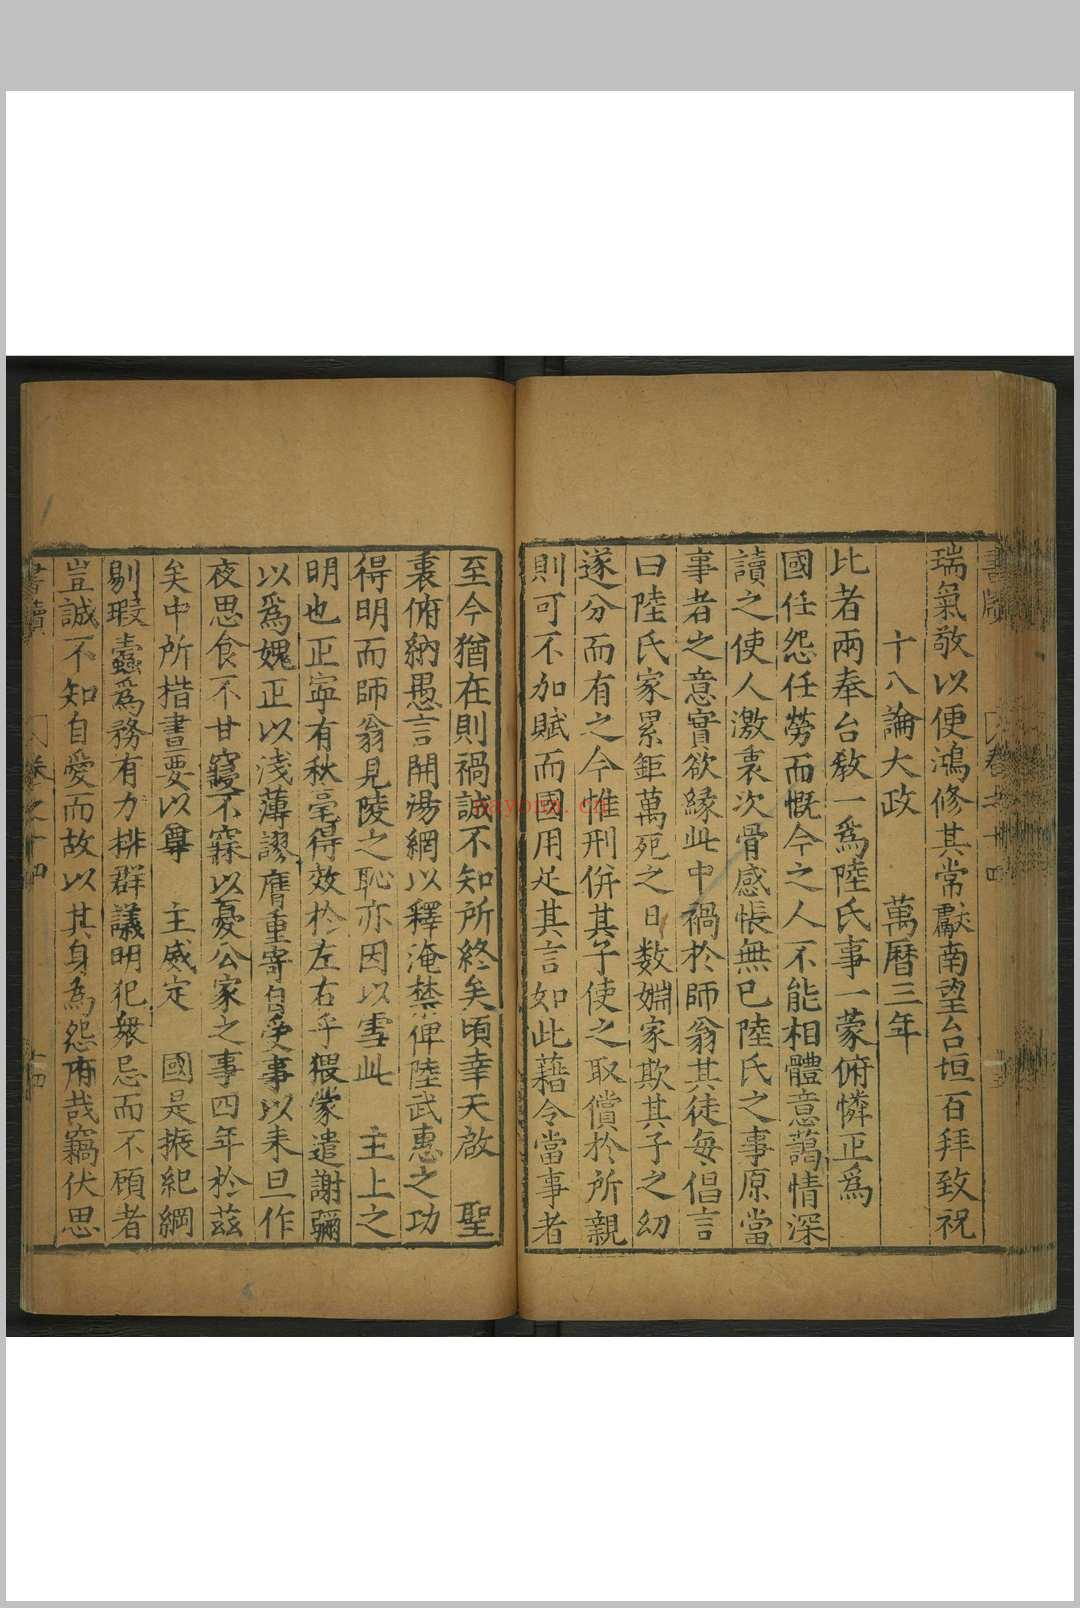 瑞氣敬以便鴻修其常獻南望台垣百拜致祝
十八論大政 萬曆三年
比者兩奉台教一爲陸氏事一蒙俯憐正爲
國任怨任勞而慨今之人不能相體意藹情深
讀之使人激衷次骨感悵無已陸氏之事原當
事者之意實欲緣此中禍於師翁其徒每倡言
曰陸氏家累鉅萬死之日數姻家欺其子之幼
遂分而有之今惟刑併其子使之取償於所親
則可不加賦而國用足其言如此藉令當事者
至今猶在則禍誠不知所終矣頃幸天啟 聖
衷俯納愚言開湯網以釋淹禁俾陸武惠之功
得明而師翁見陵之恥亦因以雪此 主上之
明也正寧有秋毫得效於左右乎猥蒙遣謝彌
以爲媿正以淺薄謬膺重寄自受事以來旦作
夜思食不甘寢不寐以憂公家之事四年於茲
矣中所措畫要以尊 主威定 國是振紀綱
剔瑕蠹爲務有力排群議明犯衆忌而不顧者
豈誠不知自愛而故以其身爲怨府哉竊伏思
書牘 卷之十四 十四
nayona.cn